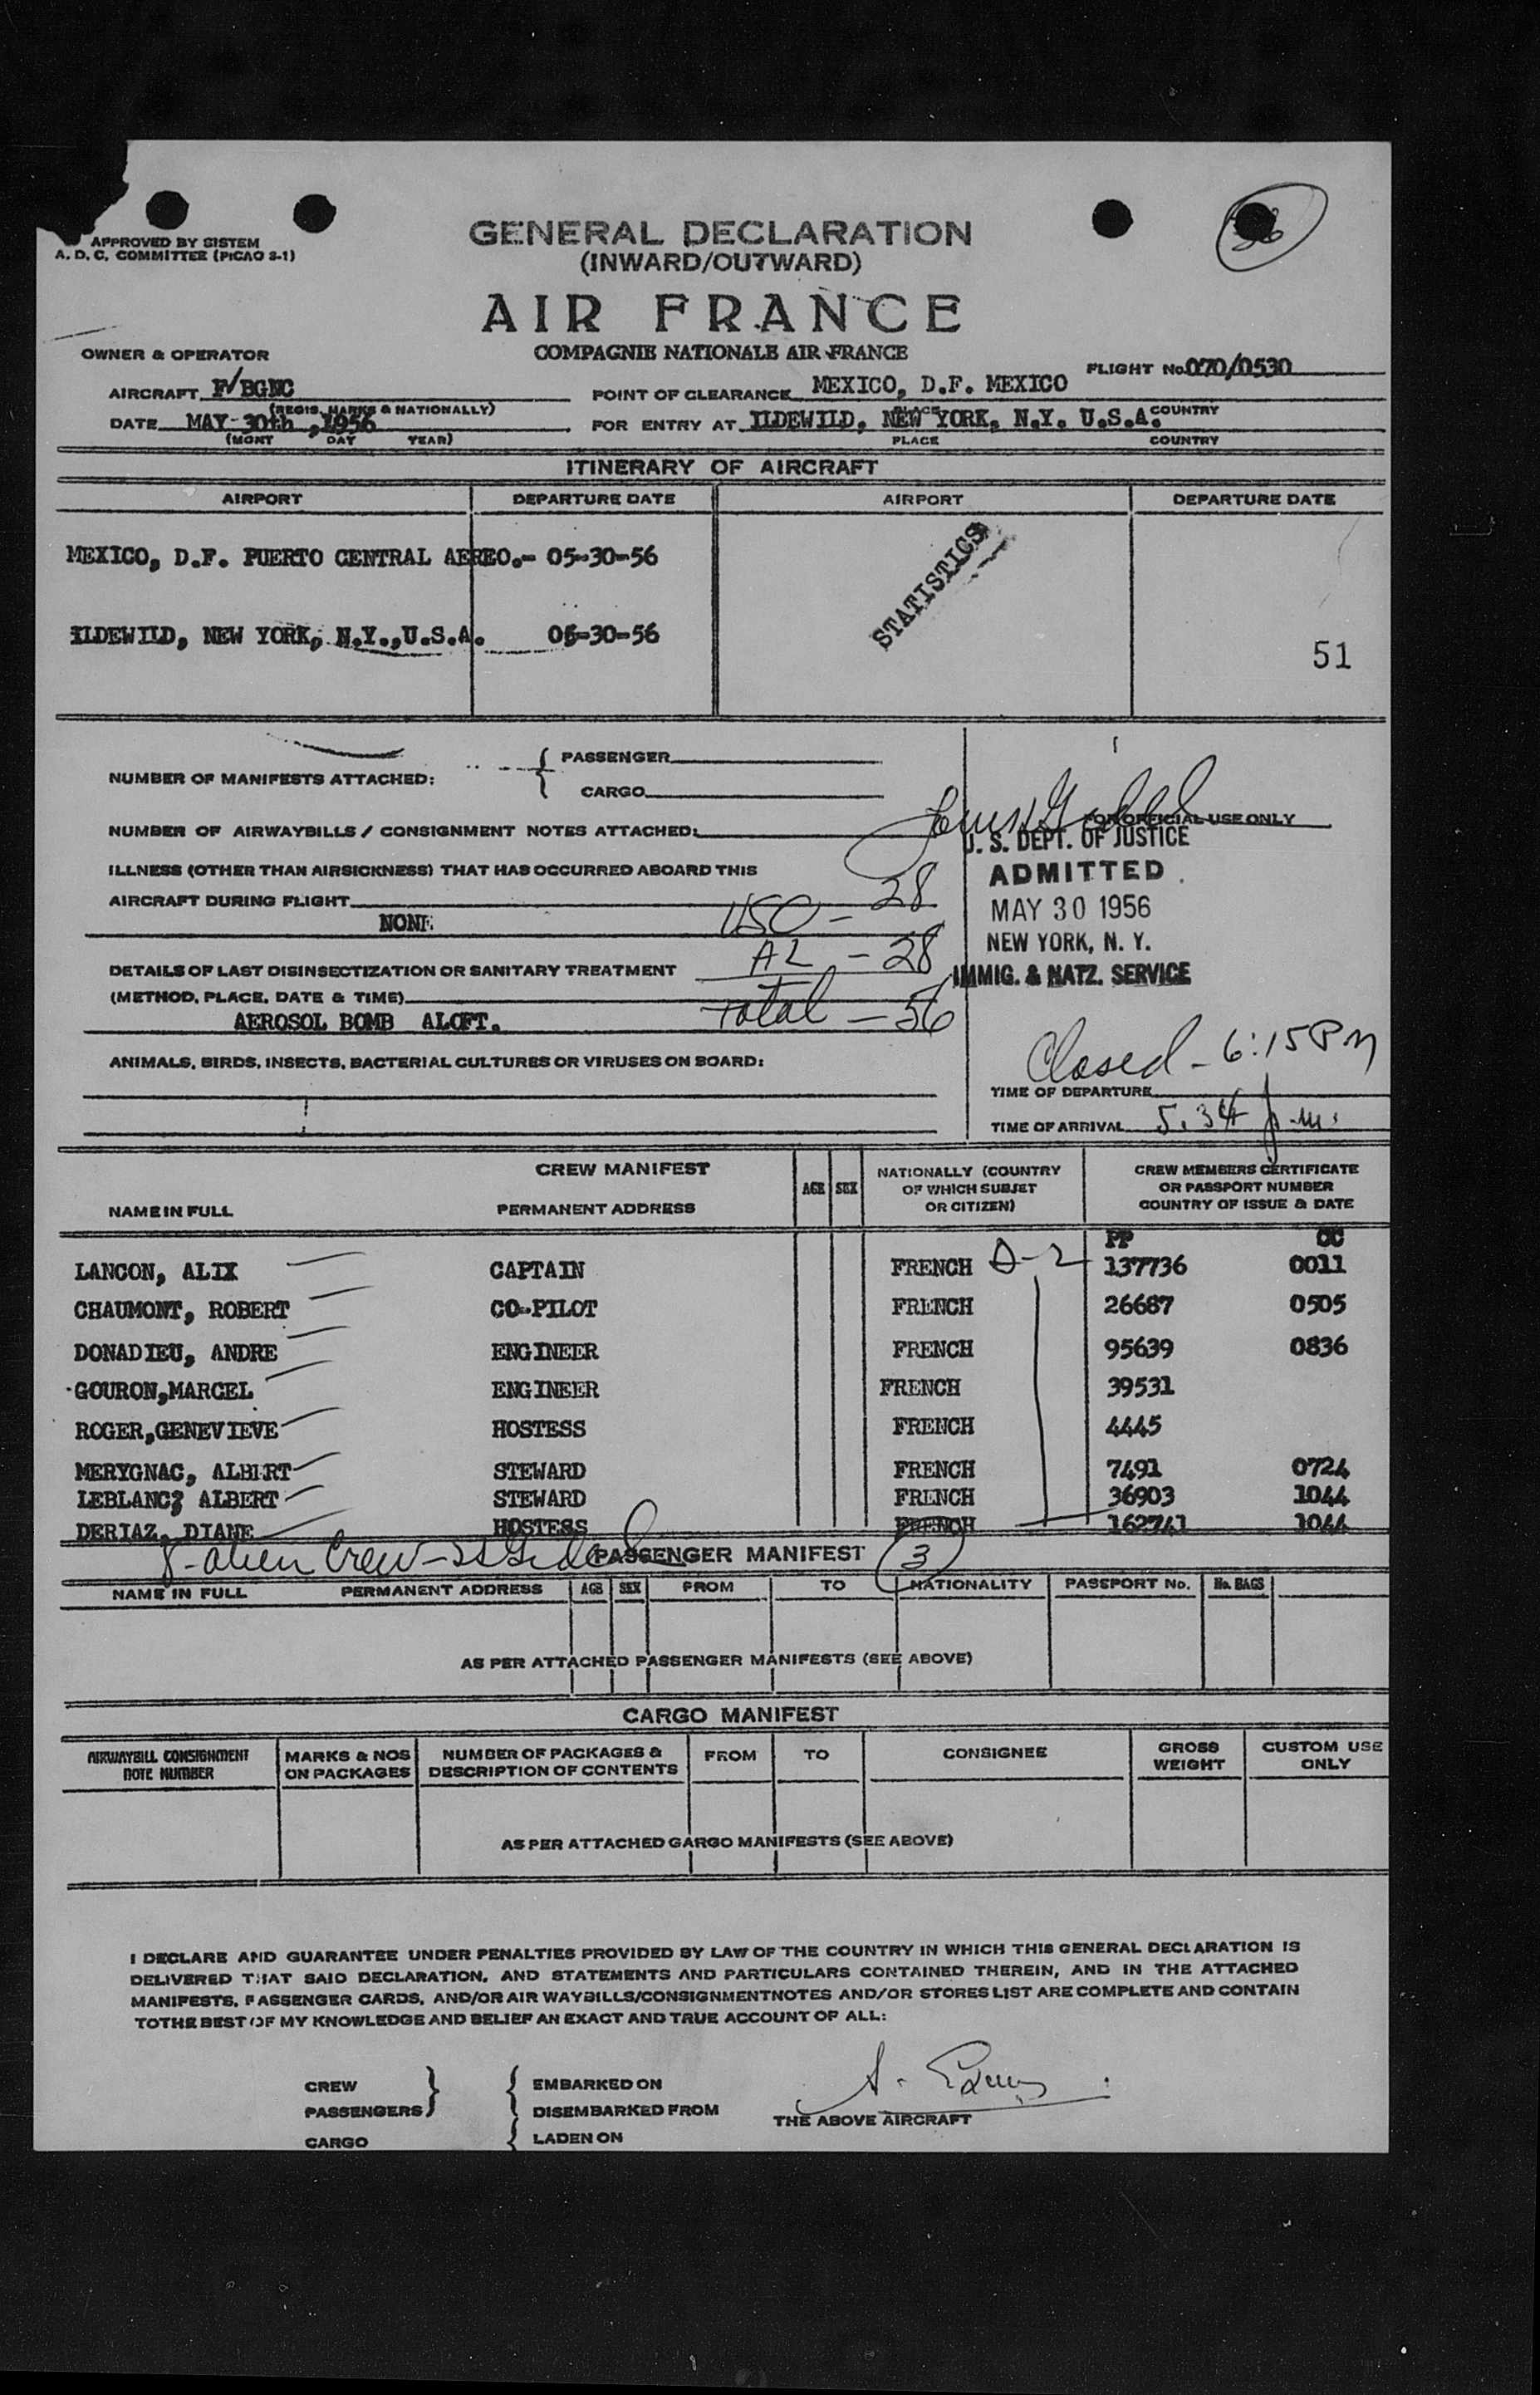 APPROVED BY SISTEM
A. D. C. COMMITTEE (PICAO S-1)
GENERAL DECLARATION
(INWARD/OUTWARD)
AIR FRANCE
COMPAGNIE NATIONALE AIR FRANCE
OWNER & OPERATOR
FLIGHT No. 070/0530
AIRCRAFT F/BGNC
POINT OF CLEARANCE MEXICO, D.F. MEXICO
(REGIS. MARKS & NATIONALLY)
COUNTRY
DATE MAY 30th ,1956
FOR ENTRY AT ILDEWILD, NEW YORK, N.Y. U.S.A.
(MONT DAY YEAR)
PLACE COUNTRY
ITINERARY OF AIRCRAFT
AIRPORT DEPARTURE DATE AIRPORT DEPARTURE DATE
MEXICO, D.F. PUERTO CENTRAL AEREO.- 05-30-56
STATISTICS
ILDEWILD, NEW YORK, N.Y.,U.S.A. 05-30-56
51
NUMBER OF MANIFESTS ATTACHED:
PASSENGER
CARGO
NUMBER OF AIRWAYBILLS / CONSIGNMENT NOTES ATTACHED:
FOR OFFICIAL USE ONLY
U. S. DEPT. OF JUSTICE
ADMITTED
MAY 30 1956
NEW YORK, N. Y.
IMMIG. & NATZ. SERVICE
ILLNESS (OTHER THAN AIRSICKNESS) THAT HAS OCCURRED ABOARD THIS
AIRCRAFT DURING FLIGHT
NONE
USC - 28
DETAILS OF LAST DISINSECTIZATION OR SANITARY TREATMENT
AL - 28
(METHOD, PLACE, DATE & TIME)
AEROSOL BOMB ALOFT.
Total - 56
ANIMALS, BIRDS, INSECTS, BACTERIAL CULTURES OR VIRUSES ON BOARD:
Closed - 6:15 PM
TIME OF DEPARTURE
TIME OF ARRIVAL 5.34 p.m.
CREW MANIFEST
NAME IN FULL PERMANENT ADDRESS AGE SEX NATIONALLY (COUNTRY
OF WHICH SUBJET
OR CITIZEN)
CREW MEMBERS CERTIFICATE
OR PASSPORT NUMBER
COUNTRY OF ISSUE & DATE
PP CC
LANCON, ALIX CAPTAIN FRENCH D-2 137736 0011
CHAUMONT, ROBERT CO-PILOT FRENCH 26687 0505
DONADIEU, ANDRE ENGINEER FRENCH 95639 0836
GOURON,MARCEL ENGINEER FRENCH 39531
ROGER,GENEVIEVE HOSTESS FRENCH 4445
MERYGNAC, ALBERT STEWARD FRENCH 7491 0724
LEBLANC, ALBERT STEWARD FRENCH 36903 1044
DERIAZ, DIANE HOSTESS FRENCH 162741 1044
8- alien Crew
PASSENGER MANIFEST
3
NAME IN FULL PERMANENT ADDRESS AGE SEX FROM TO NATIONALITY PASSPORT No. No. BAGS
AS PER ATTACHED PASSENGER MANIFESTS (SEE ABOVE)
CARGO MANIFEST
AIRWAYBILL CONSIGNMENT
NOTE NUMBER
MARKS & NOS
ON PACKAGES
NUMBER OF PACKAGES &
DESCRIPTION OF CONTENTS
FROM TO CONSIGNEE
GROSS
WEIGHT
CUSTOM USE
ONLY
AS PER ATTACHED GARGO MANIFESTS (SEE ABOVE)
I DECLARE AND GUARANTEE UNDER PENALTIES PROVIDED BY LAW OF THE COUNTRY IN WHICH THIS GENERAL DECLARATION IS
DELIVERED THAT SAID DECLARATION, AND STATEMENTS AND PARTICULARS CONTAINED THEREIN, AND IN THE ATTACHED
MANIFESTS, PASSENGER CARDS, AND/OR AIR WAYBILLS/CONSIGNMENTNOTES AND/OR STORES LIST ARE COMPLETE AND CONTAIN
TOTHE BEST OF MY KNOWLEDGE AND BELIEF AN EXACT AND TRUE ACCOUNT OF ALL:
CREW
PASSENGERS
CARGO
EMBARKED ON
DISEMBARKED FROM
LADEN ON
THE ABOVE AIRCRAFT